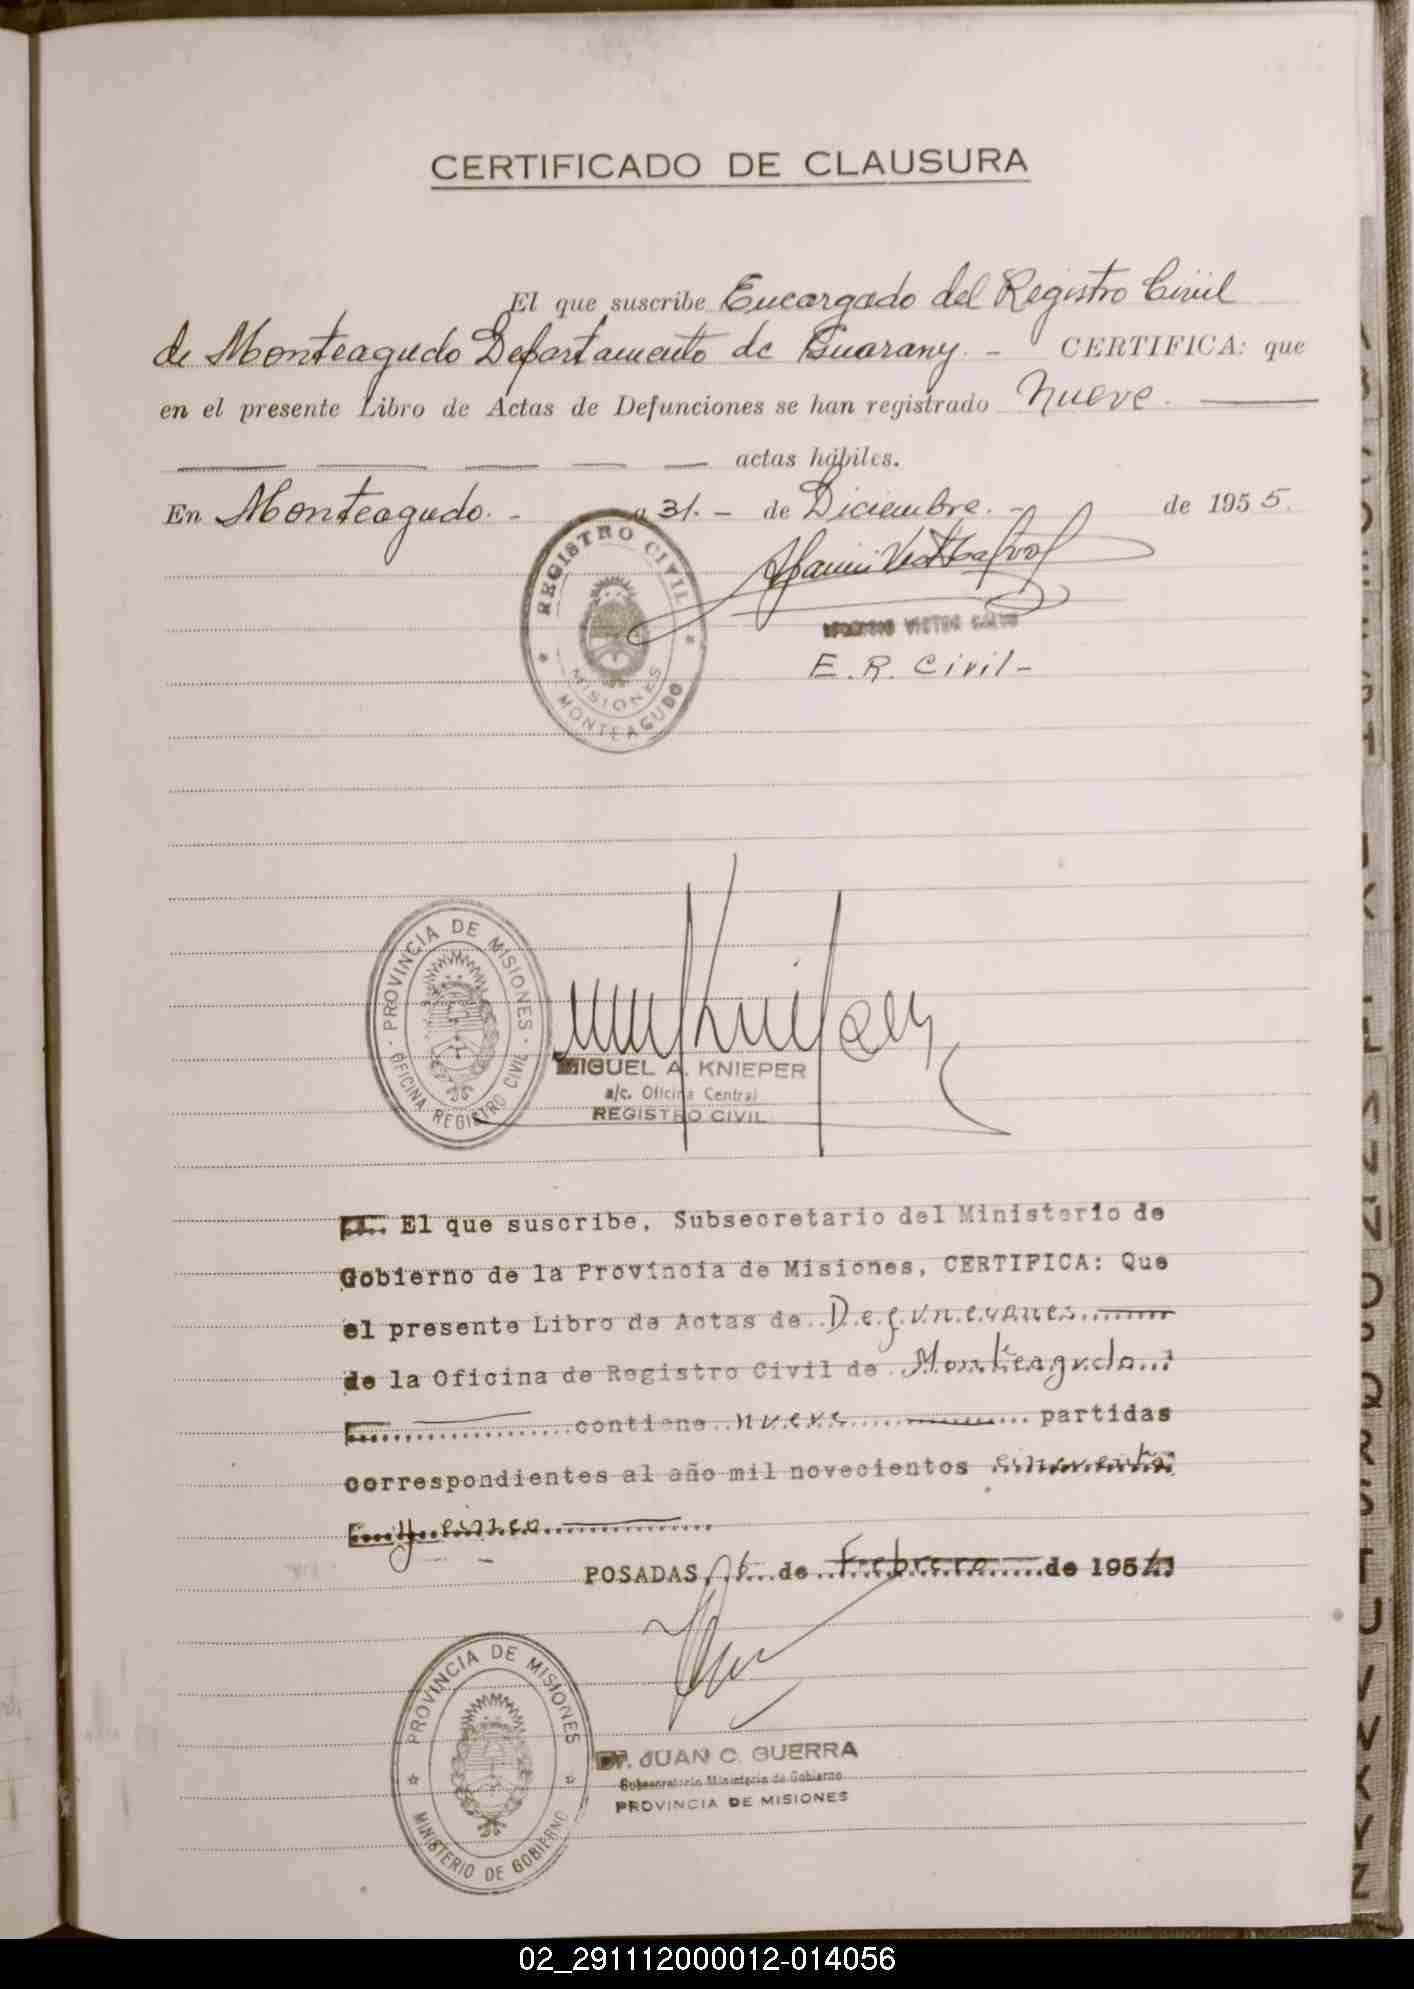 CERTIFICADO DE CLAUSURA
El que suscribe Encargado del Registro Civil
de Monteagudo Departamento de Guarany. - CERTIFICA: que
en el presente Libro de Actas de Defunciones se han registrado Nueve.
actas hábiles.
En Monteagudo. - a 31. - de Diciembre. - de 1955.
REGISTRO CIVIL
MISIONES
MONTEAGUDO
VICTOR
E. R. Civil-
PROVINCIA DE MISIONES
OFICINA REGISTRO CIVIL
MIGUEL A. KNIEPER
a/c. Oficina Central
REGISTRO CIVIL
El que suscribe, Subsecretario del Ministerio de
Gobierno de la Provincia de Misiones, CERTIFICA: Que
el presente Libro de Actas de Defunciones
de la Oficina de Registro Civil de Monteagudo
contiene nueve partidas
correspondientes al año mil novecientos cincuenta
y cinco
POSADAS, de Febrero de 195
PROVINCIA DE MISIONES
MINISTERIO DE GOBIERNO
Dr. JUAN C. GUERRA
Subsecretario Ministerio de Gobierno
PROVINCIA DE MISIONES
02_291112000012-014056